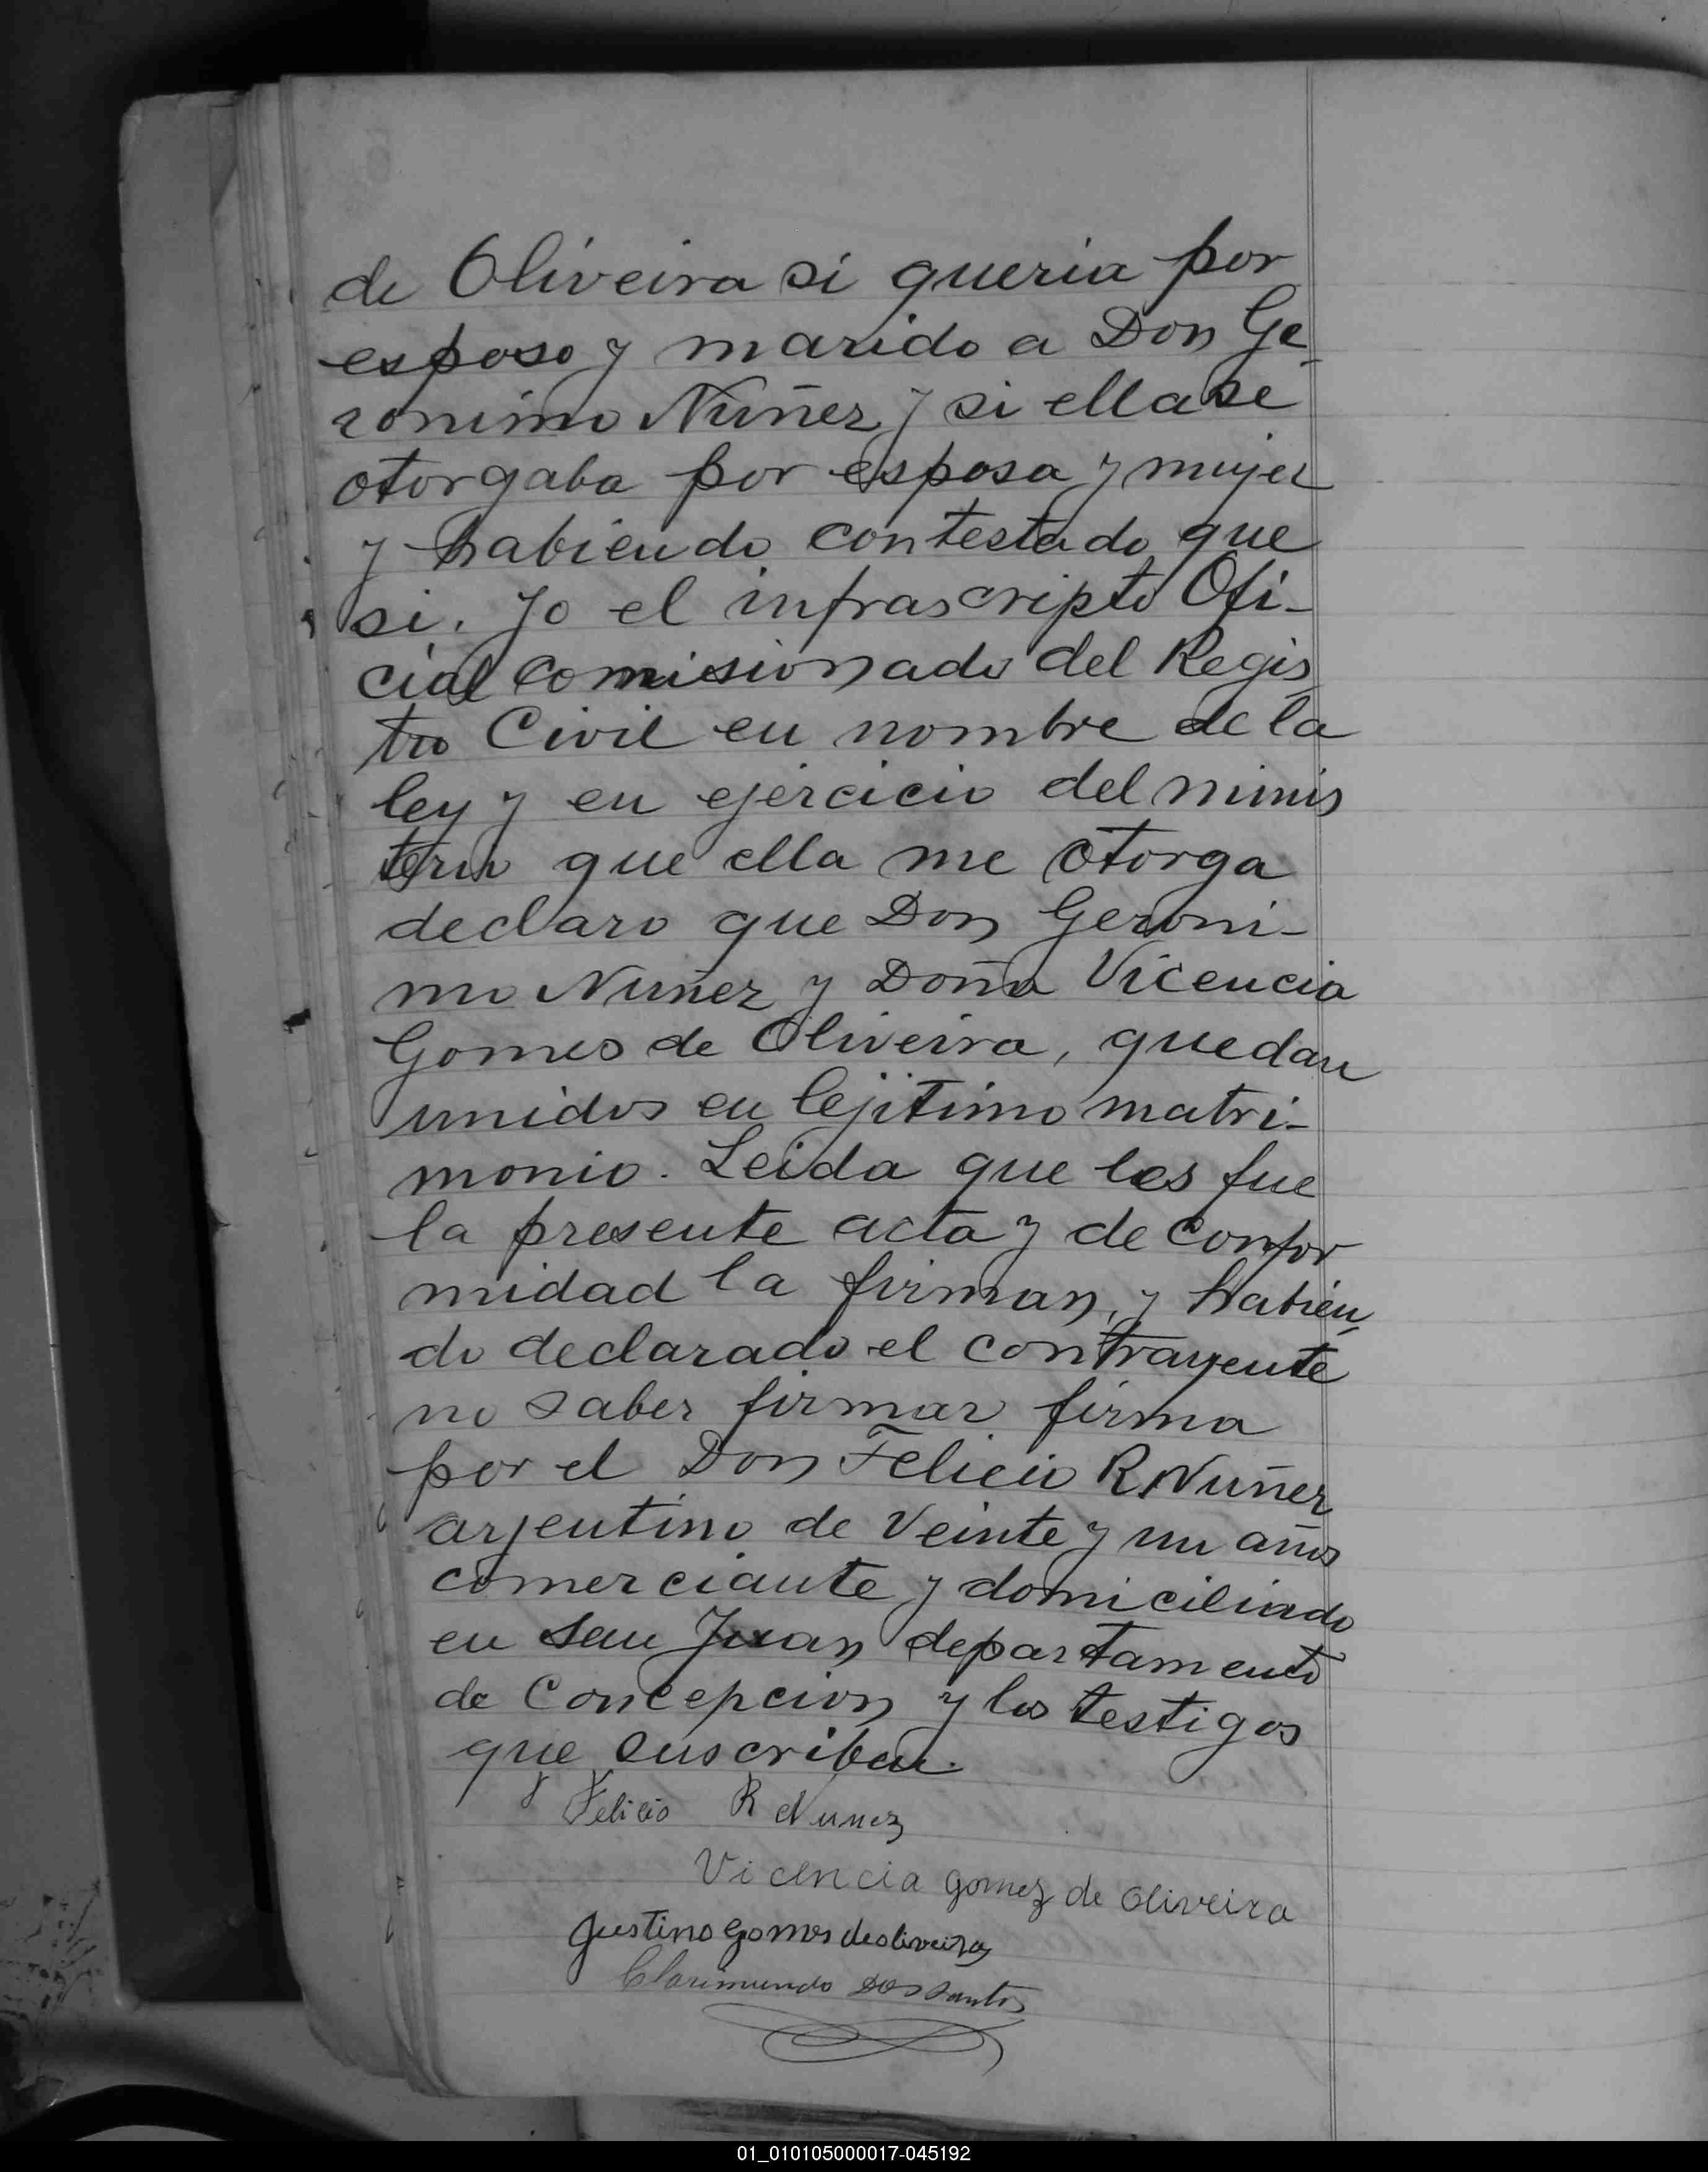 de Oliveira si queria por
esposo y marido a Don Ge-
ronimo Nuñez y si ella se
otorgaba por esposa y mujer
y habiendo contestado que
si. Yo el infrascripto Ofi-
cial comisionado del Regis
tro Civil en nombre de la
ley y en ejercicio del minis
terio que ella me otorga
declaro que Don Geroni-
mo Nuñez y Doña Vicencia
Gomes de Oliveira, quedan
unidos en lejitimo matri-
monio. Leida que les fue
la presente acta y de confor
midad la firman, y habien-
do declarado el contrayente
no saber firmar firma
por el Don Felicio R. Nuñez
arjentino de veinte y un años
comerciante y domiciliado
en San Juan departamento
de Concepcion y los testigos
que suscriben.
Felicio R Nunez
Vicencia gomez de Oliveira
Justino gomes deoliveira
Clarimundo Dos Santos
01_010105000017-045192